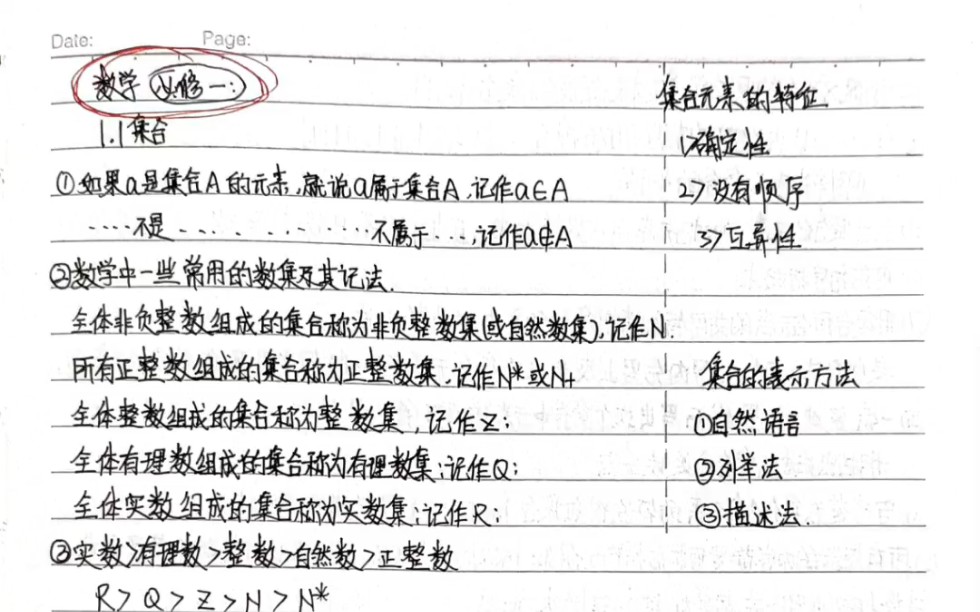 Date: Page:
数学 必修一:
1.1 集合
①如果a是集合A的元素,就说a属于集合A,记作a∈A
…不是… 不属于…,记作a∉A
②数学中一些常用的数集及其记法.
全体非负整数组成的集合称为非负整数集(或自然数集),记作N.
所有正整数组成的集合称为正整数集,记作N*或N+
全体整数组成的集合称为整数集,记作Z;
全体有理数组成的集合称为有理数集;记作Q;
全体实数组成的集合称为实数集;记作R;
③实数>有理数>整数>自然数>正整数
R>Q>Z>N>N*
集合元素的特征.
1>确定性
2>没有顺序
3>互异性
集合的表示方法
①自然语言
②列举法
③描述法.